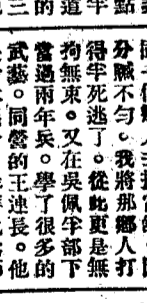 分贓不勻。我將那鄉人打
得半死逃了。從此更是無
拘無束。又在吳佩孚部下
當過兩年兵。學了很多的
武藝。同營的王連長。他